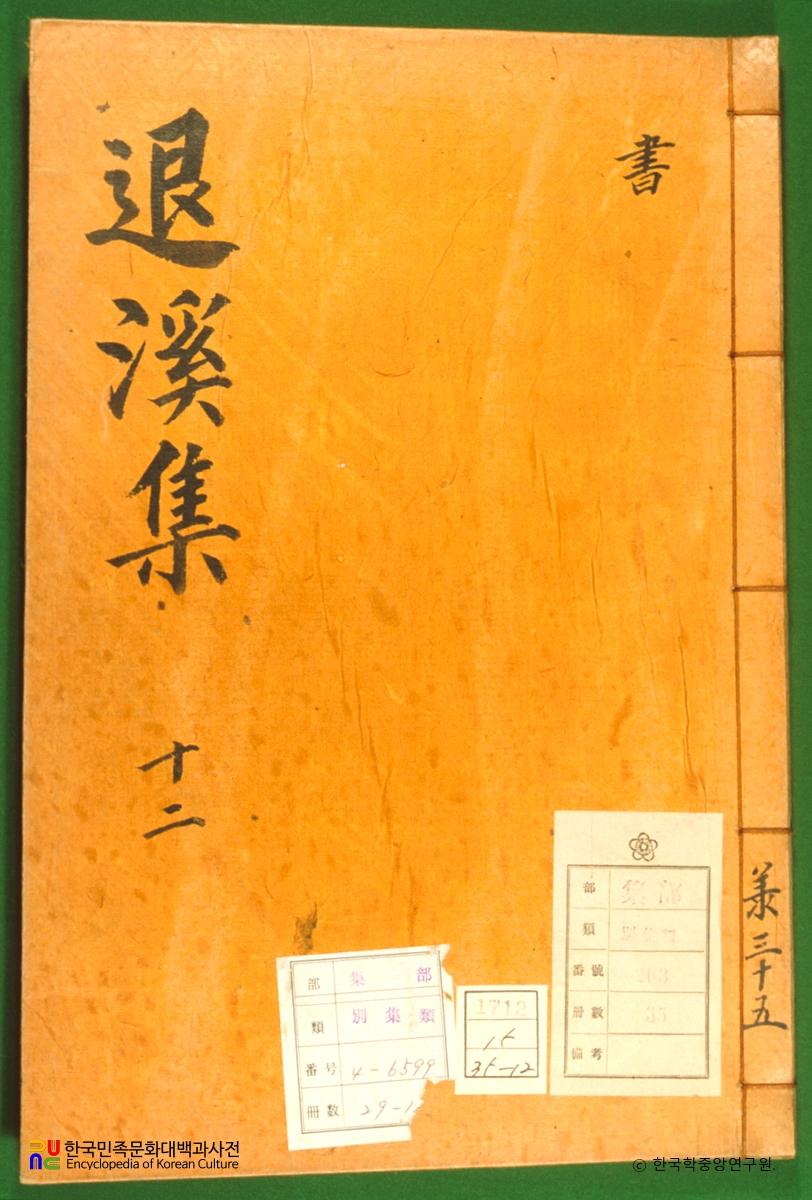 書
退溪集
十二
共三十五
部 集部
類 別集類
番号 4-6599
冊數 29-1
1712
15
35-12
部 集部
類 別集類
番號 203
冊數 35
備考
한국민족문화대백과사전
Encyclopedia of Korean Culture
© 한국학중앙연구원.